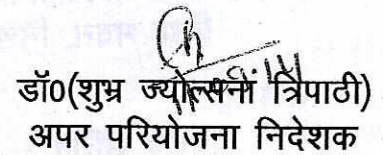 डॉ0(शुभ्र ज्योत्सनां त्रिपाठी)
अपर परियोजना निदेशक